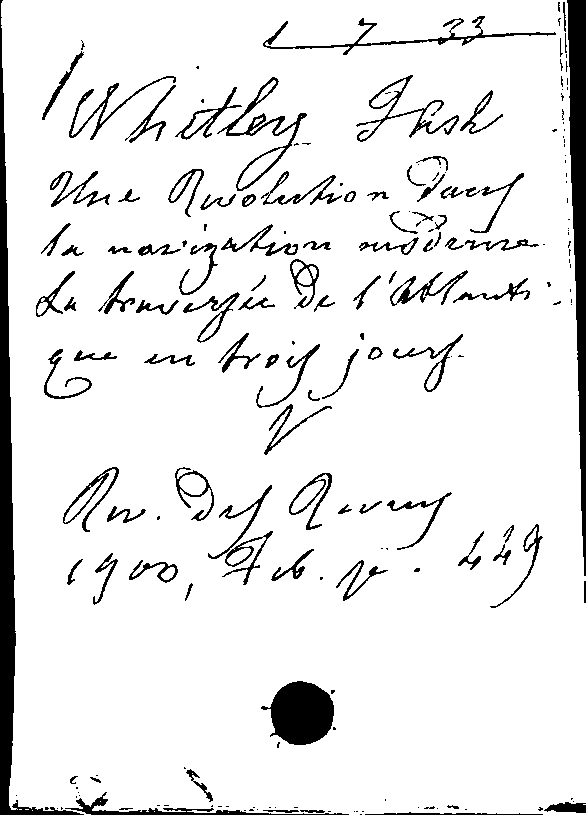 1 7 33
Whitley Fish
Une Revolution dans
la navigation moderne
La traversée de l'Atlanti-
que en trois jours.
V
Rev. des Revues
1900, Feb. p. 449